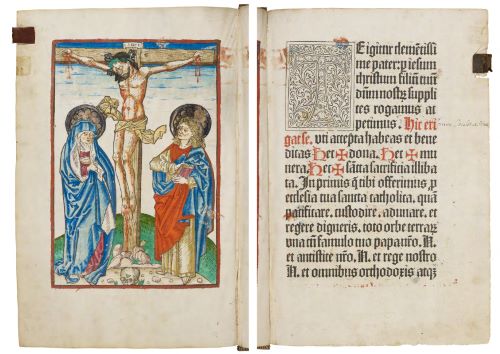 INRI
TE igitur clemẽtissi
me pater: ꝑ iesum
christum filiũ tuũ
dñm nostrꝝ suppli
ces rogamus at
petimus. Hic eri
gat se. vti accepta habeas et bene
dicas Hec ✠ dona. Hec ✠ mu
nera. Hec ✠ sãcta sacrificia illiba
ta. In primis q̃ tibi offerimus ꝓ
ecclesia tua sancta catholica. quã
pacificare. custodire. adunare. et
regere digneris. toto orbe terraꝝ
vna cũ famulo tuo papa nr̃o. N.
et antistite nr̃o. N. et rege nostro
N. et omnibus orthodoxis atqꝫ